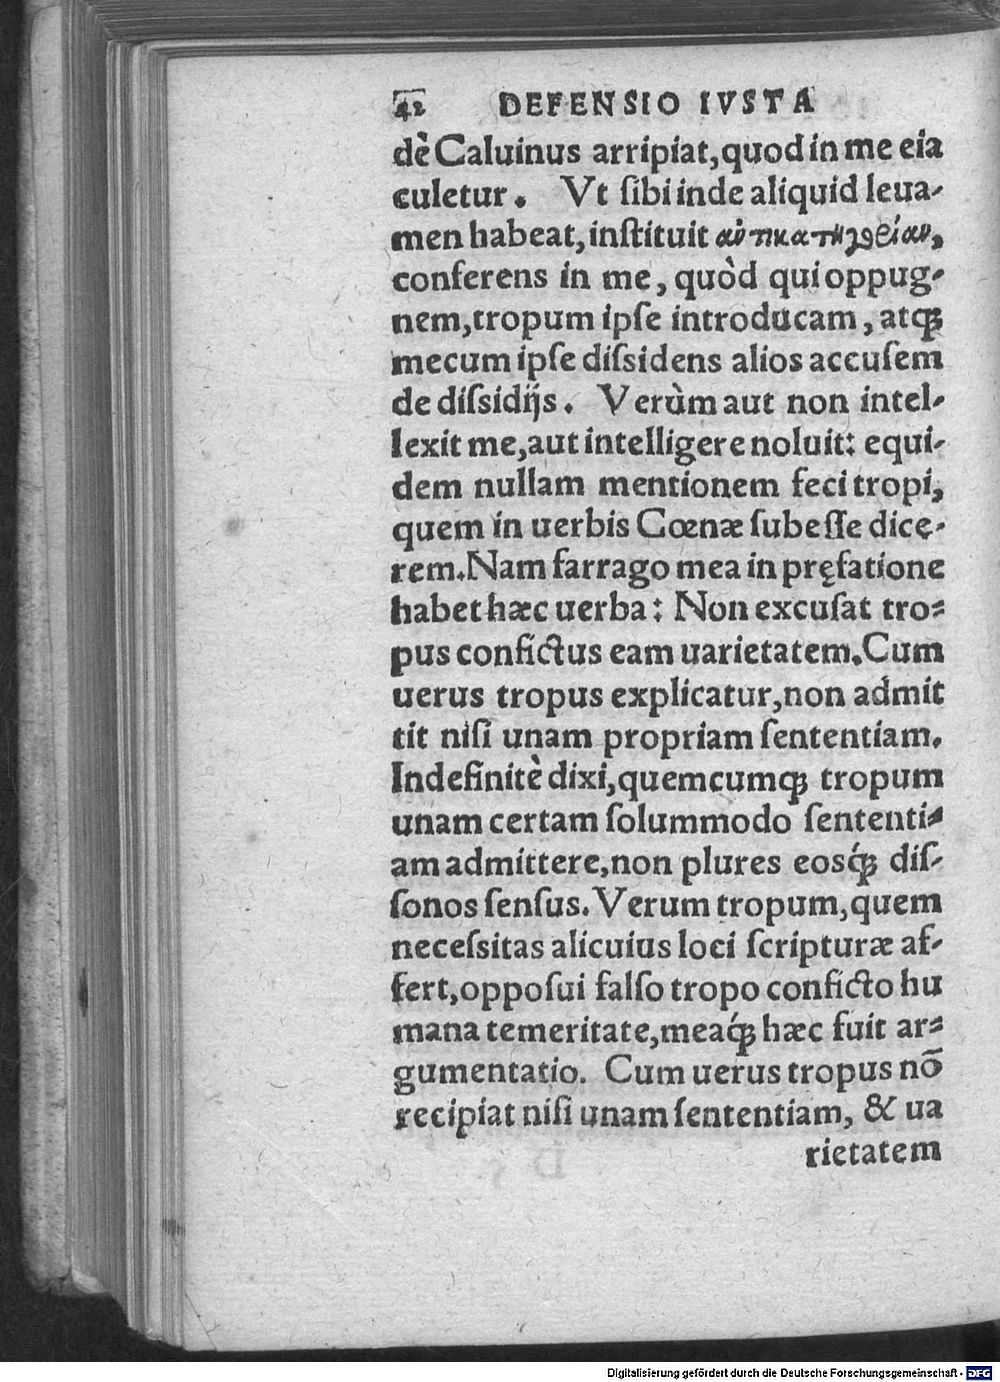 42 DEFENSIO IVSTA
dè Caluinus arripiat, quod in me eia
culetur. Vt ſibi inde aliquid leua-
men habeat, inſtituit ἀντικατηγορίαν,
conferens in me, quòd qui oppug-
nem, tropum ipſe introducam, atq;
mecum ipſe diſsidens alios accuſem
de diſsidijs. Verùm aut non intel-
lexit me, aut intelligere noluit: equi-
dem nullam mentionem feci tropi,
quem in uerbis Cœnæ ſubeſſe dice-
rem. Nam farrago mea in pręfatione
habet hæc uerba: Non excuſat tro-
pus confictus eam uarietatem. Cum
uerus tropus explicatur, non admit
tit niſi unam propriam ſententiam.
Indefinitè dixi, quemcumq; tropum
unam certam ſolummodo ſententi-
am admittere, non plures eosq́; diſ-
ſonos ſenſus. Verum tropum, quem
neceſsitas alicuius loci ſcripturæ af-
fert, oppoſui falſo tropo conficto hu
mana temeritate, meaq́; hæc fuit ar-
gumentatio. Cum uerus tropus nō
recipiat niſi unam ſententiam, & ua
rietatem
Digitalisierung gefördert durch die Deutsche Forschungsgemeinschaft - DFG